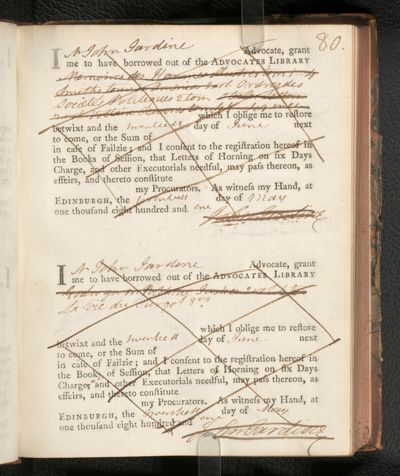 80.
I Mr John Jardine Advocate, grant
me to have borrowed out of the ADVOCATES LIBRARY
Memoires de
Smith's America
Societés
which I oblige me to reſtore
betwixt and the twentieth day of June next
to come, or the Sum of
in caſe of Failzie; and I conſent to the regiſtration hereof in
the Books of Seſſion, that Letters of Horning on ſix Days
Charge, and other Executorials needful, may paſs thereon, as
effeirs, and thereto conſtitute
my Procurators. As witneſs my Hand, at
EDINBURGH, the day of May
one thouſand eight hundred and one
John Jardine
I Mr John Jardine Advocate, grant
me to have borrowed out of the ADVOCATES LIBRARY
La vie du
which I oblige me to reſtore
betwixt and the twentieth day of June next
to come, or the Sum of
in caſe of Failzie; and I conſent to the regiſtration hereof in
the Books of Seſſion, that Letters of Horning on ſix Days
Charge, and other Executorials needful, may paſs thereon, as
effeirs, and thereto conſtitute
my Procurators. As witneſs my Hand, at
EDINBURGH, the twentieth day of May
one thouſand eight hundred and one
John Jardine